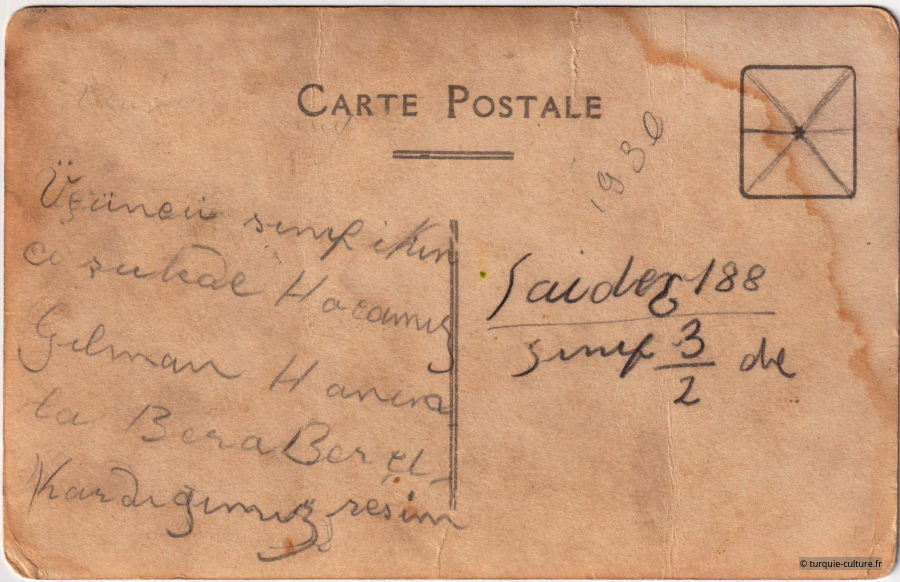 CARTE POSTALE
1930
Üçüncü sınıf ikin
ci şubede Hocamız
Gilman Hanım
la BeraBer çı_
Kardığımız resim
Saide 188
sınıf 3/2 de
© turquie-culture.fr